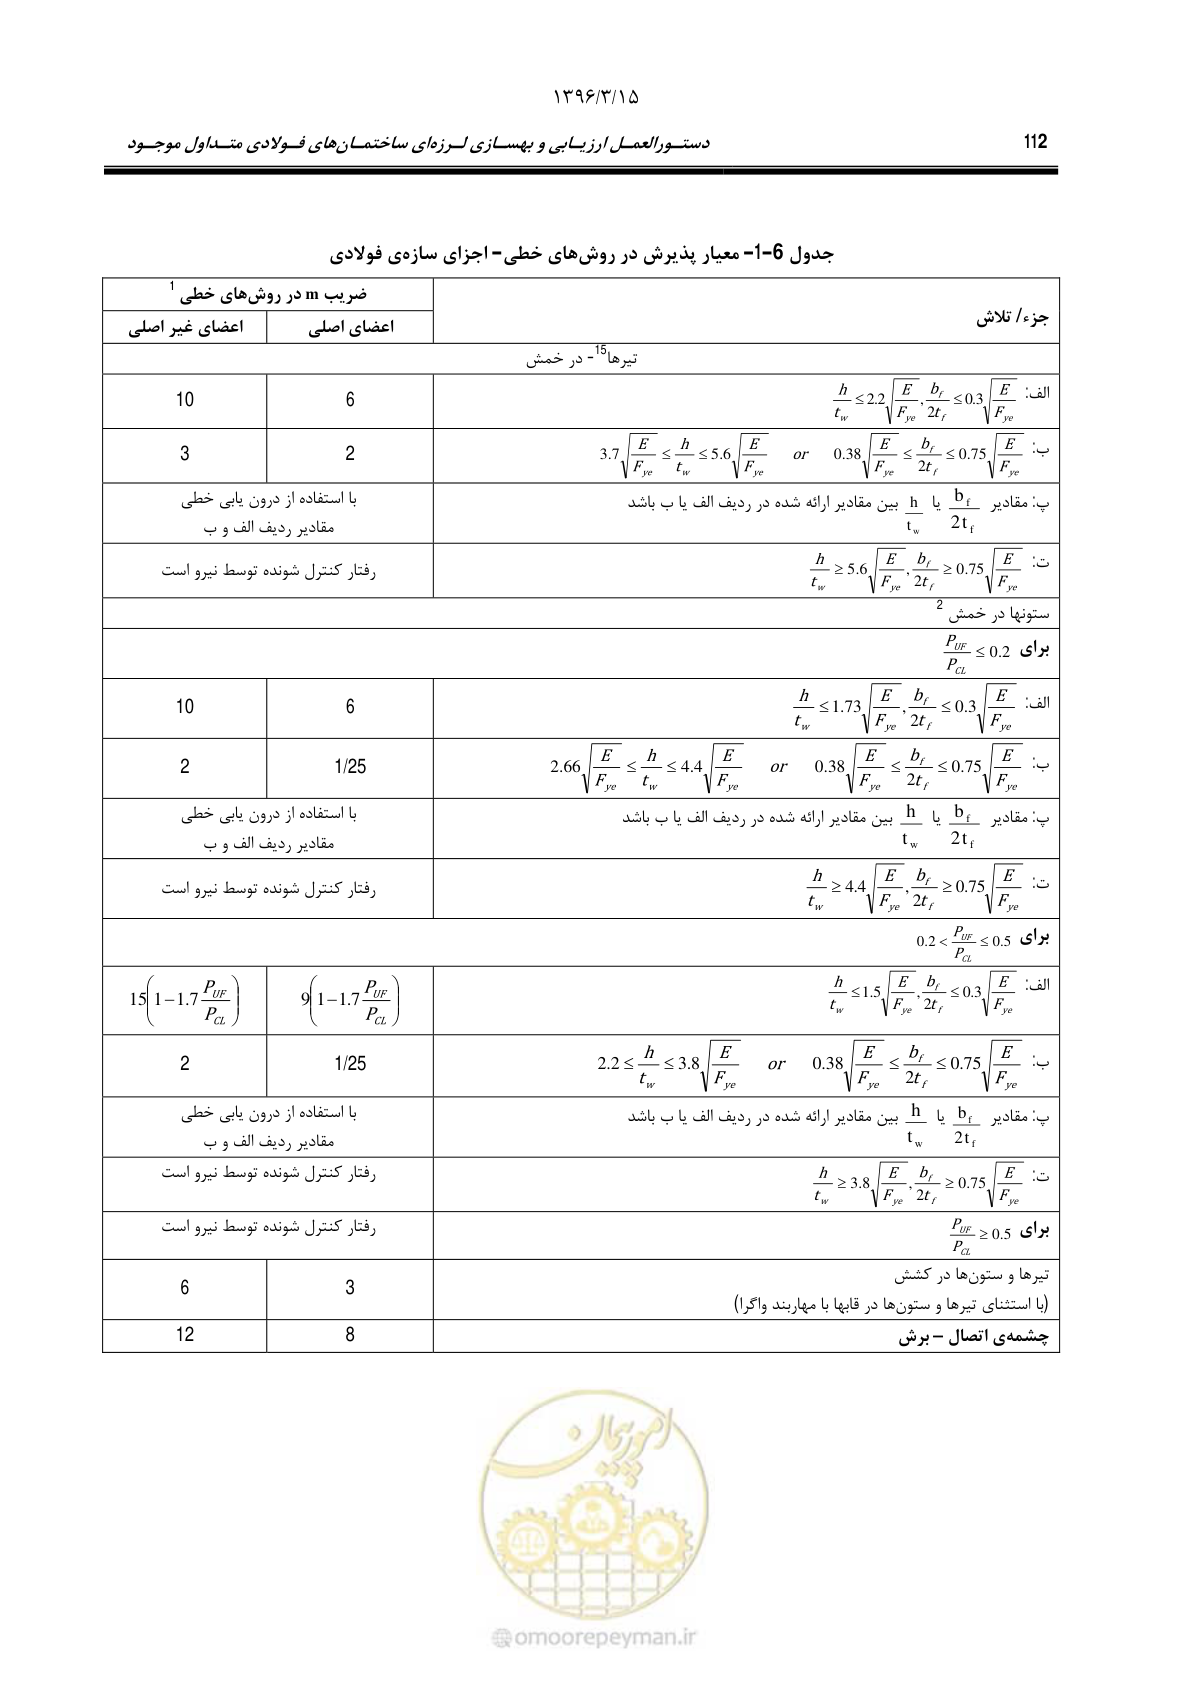 ۱۳۹۶/۳/۱۵
112 دستــورالعمــل ارزیــابی و بهســازی لــرزه‌ای ساختمــان‌های فــولادی متــداول موجــود
جدول 6-1- معیار پذیرش در روش‌های خطی- اجزای سازه‌ی فولادی
جزء/ تلاش
ضریب m در روش‌های خطی 1
اعضای اصلی اعضای غیر اصلی
تیرها15- در خمش
الف: h/t_w ≤ 2.2√(E/F_ye) , b_f/2t_f ≤ 0.3√(E/F_ye) 6 10
ب: 3.7√(E/F_ye) ≤ h/t_w ≤ 5.6√(E/F_ye) or 0.38√(E/F_ye) ≤ b_f/2t_f ≤ 0.75√(E/F_ye) 2 3
پ: مقادیر b_f/2t_f یا h/t_w بین مقادیر ارائه شده در ردیف الف یا ب باشد
با استفاده از درون یابی خطی
مقادیر ردیف الف و ب
ت: h/t_w ≥ 5.6√(E/F_ye) , b_f/2t_f ≥ 0.75√(E/F_ye) رفتار کنترل شونده توسط نیرو است
ستونها در خمش 2
برای P_UF/P_CL ≤ 0.2
الف: h/t_w ≤ 1.73√(E/F_ye) , b_f/2t_f ≤ 0.3√(E/F_ye) 6 10
ب: 2.66√(E/F_ye) ≤ h/t_w ≤ 4.4√(E/F_ye) or 0.38√(E/F_ye) ≤ b_f/2t_f ≤ 0.75√(E/F_ye) 1/25 2
پ: مقادیر b_f/2t_f یا h/t_w بین مقادیر ارائه شده در ردیف الف یا ب باشد
با استفاده از درون یابی خطی
مقادیر ردیف الف و ب
ت: h/t_w ≥ 4.4√(E/F_ye) , b_f/2t_f ≥ 0.75√(E/F_ye) رفتار کنترل شونده توسط نیرو است
برای 0.2 < P_UF/P_CL ≤ 0.5
الف: h/t_w ≤ 1.5√(E/F_ye) , b_f/2t_f ≤ 0.3√(E/F_ye) 9(1−1.7 P_UF/P_CL) 15(1−1.7 P_UF/P_CL)
ب: 2.2 ≤ h/t_w ≤ 3.8√(E/F_ye) or 0.38√(E/F_ye) ≤ b_f/2t_f ≤ 0.75√(E/F_ye) 1/25 2
پ: مقادیر b_f/2t_f یا h/t_w بین مقادیر ارائه شده در ردیف الف یا ب باشد
با استفاده از درون یابی خطی
مقادیر ردیف الف و ب
ت: h/t_w ≥ 3.8√(E/F_ye) , b_f/2t_f ≥ 0.75√(E/F_ye) رفتار کنترل شونده توسط نیرو است
برای P_UF/P_CL ≥ 0.5 رفتار کنترل شونده توسط نیرو است
تیرها و ستون‌ها در کشش
(با استثنای تیرها و ستون‌ها در قابها با مهاربند واگرا) 3 6
چشمه‌ی اتصال – برش 8 12
امورپیمان
omoorepeyman.ir